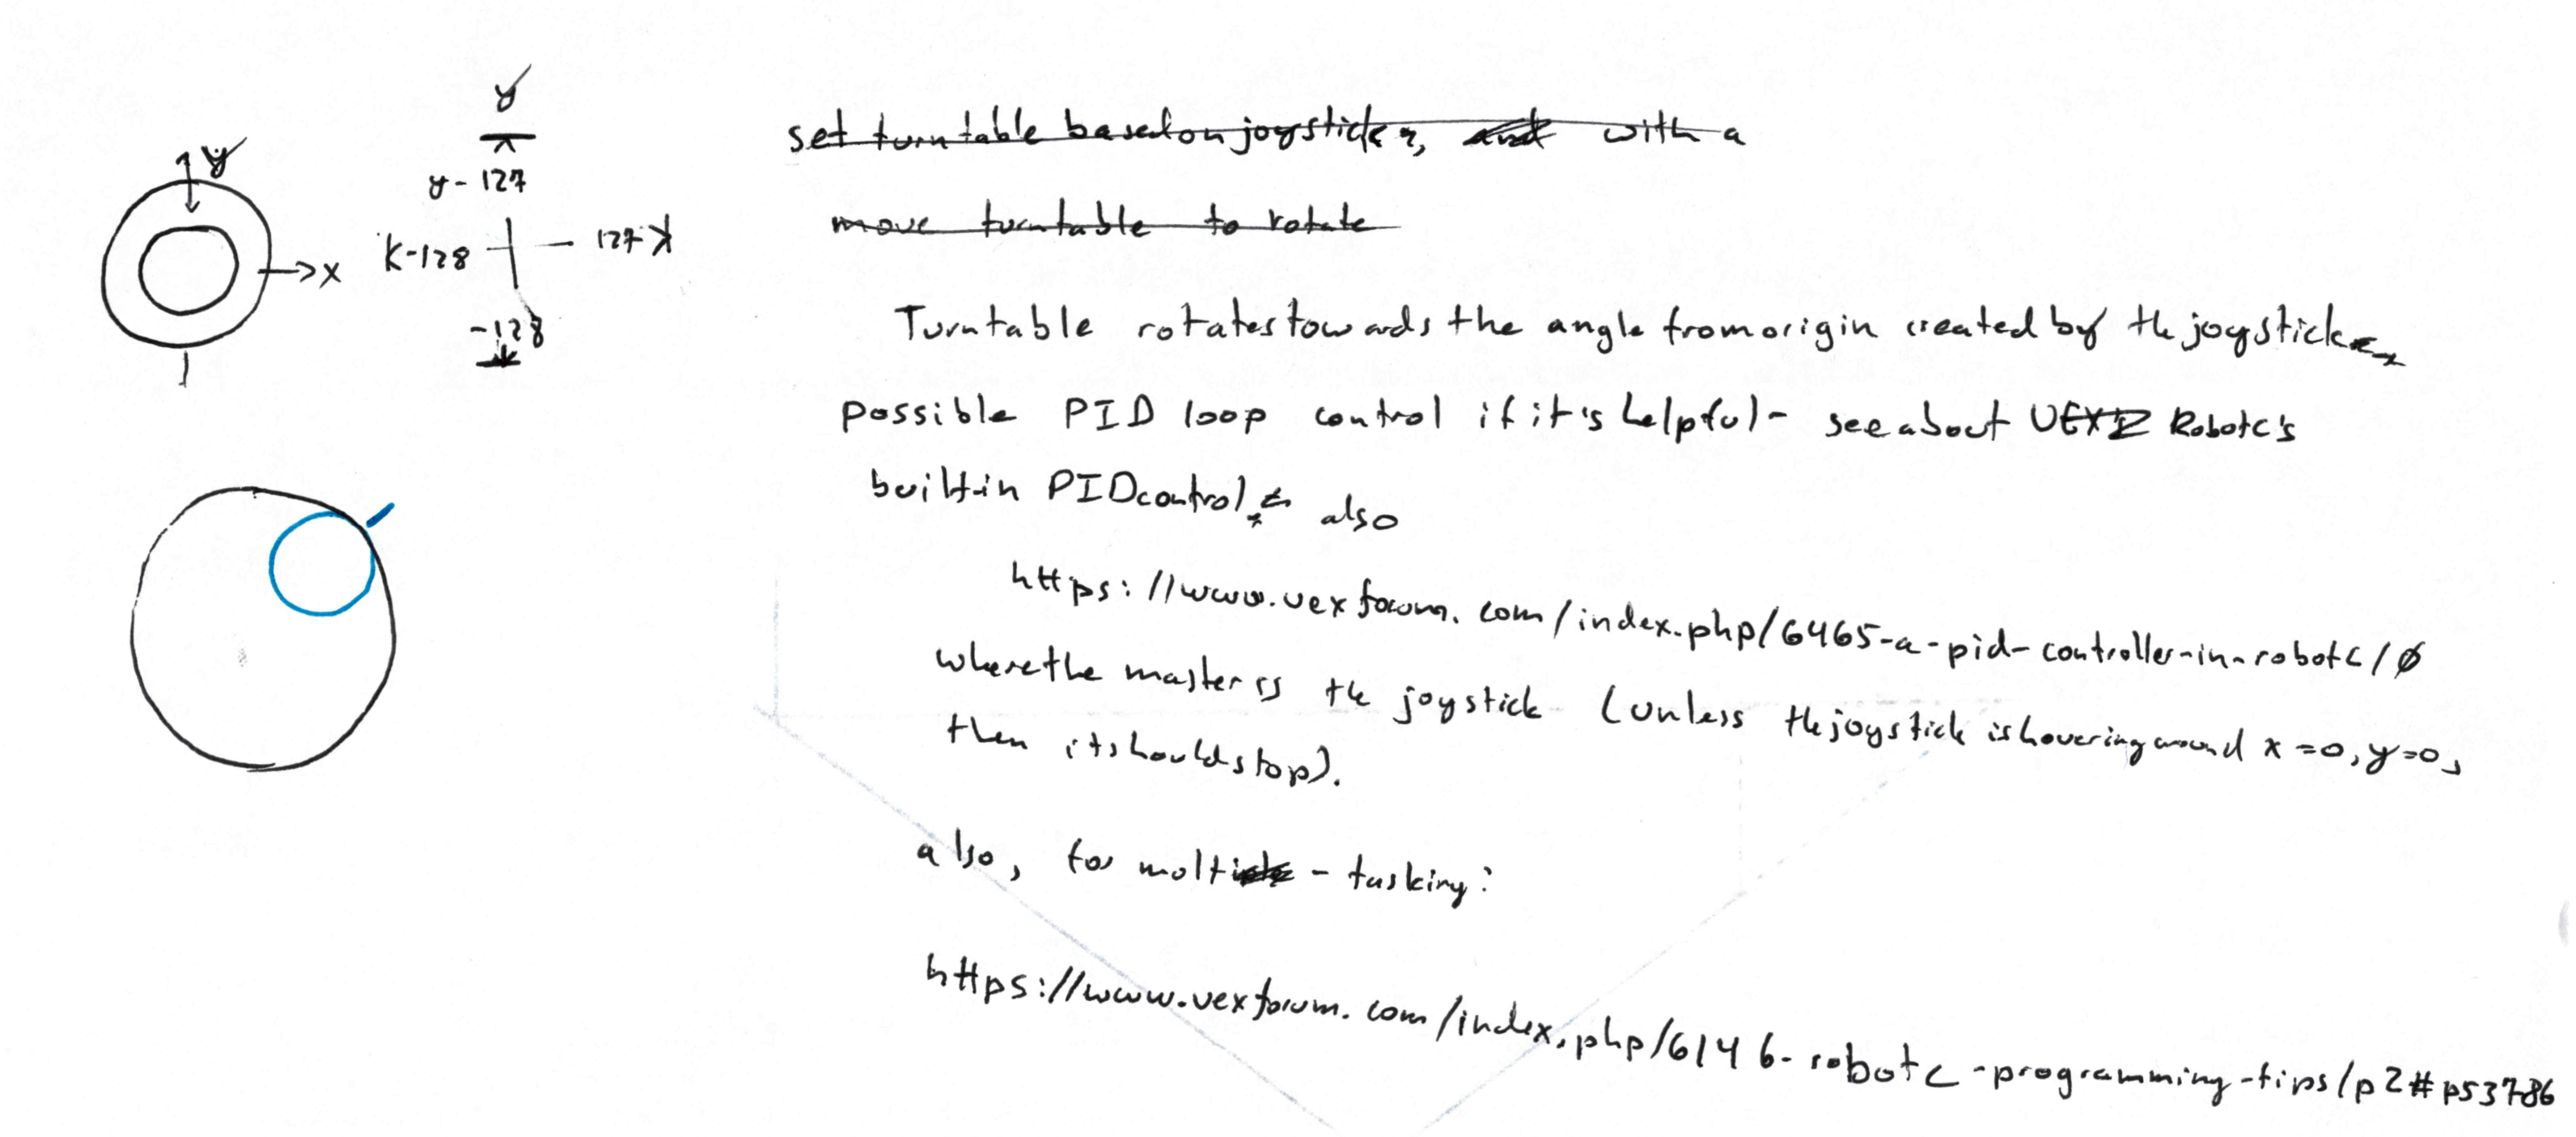 y
y
y - 127
x
-128
127
-128
set turntable based on joystick, and with a
move turntable to rotate
Turntable rotates towards the angle from origin created by the joystick
possible PID loop control if it's helpful - see about VEX Robotc's
built-in PID control. also
https://www.vexforum.com/index.php/6465-a-pid-controller-in-robotc/0
where the master is the joystick (unless the joystick is hovering around x=0, y=0,
then it should stop).
also, for multi - tasking:
https://www.vexforum.com/index.php/6146-robotc-programming-tips/p2#p53786